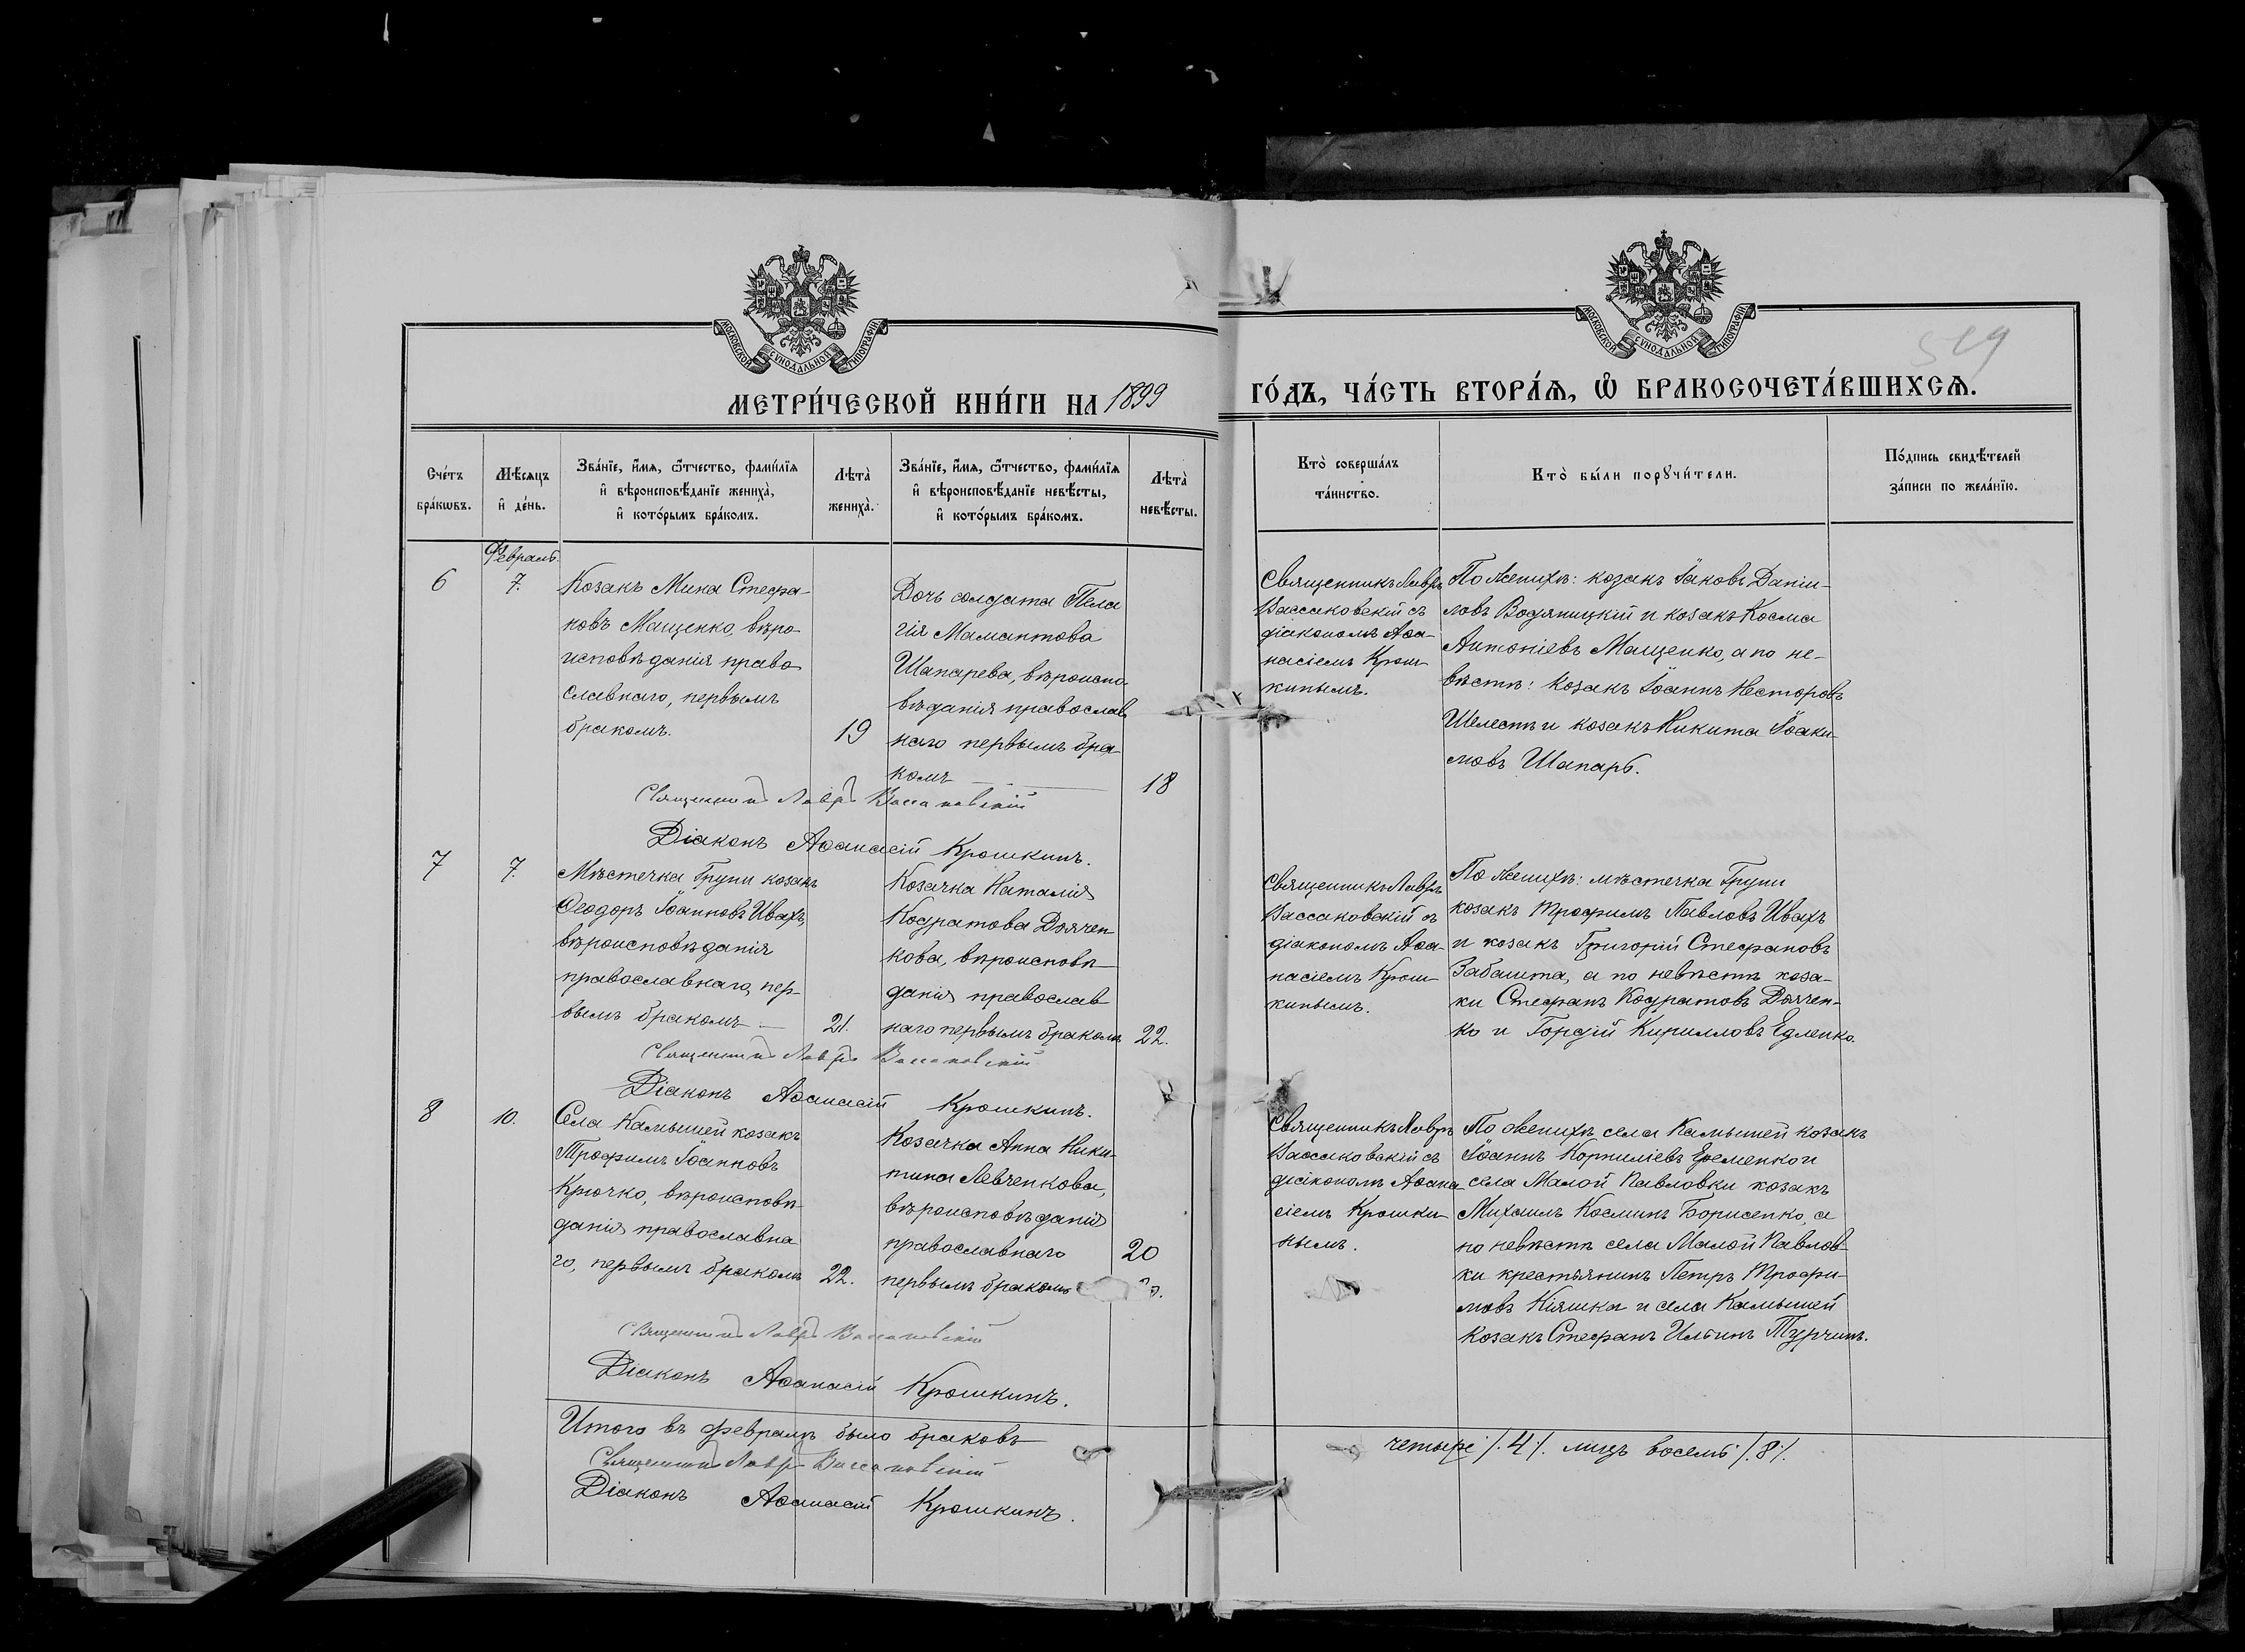 МОСКОВСКОЙ СУНОДАЛЬНОЙ ТИПОГРАФІИ
МОСКОВСКОЙ СУНОДАЛЬНОЙ ТИПОГРАФІИ
519
МЕТРИ́ЧЕСКОЙ КНИ́ГИ НА 1899
ГО́ДЪ, ЧА́СТЬ ВТОРА́Ѧ, Ѽ БРАКОСОЧЕТА́ВШИХСѦ.
Сче́тъ бра́кѡвъ.
Мѣ́сяцъ и҆ де́нь.
Зва́нїе, и҆́мѧ, ѻ҆́тчество, фами́лїѧ
и҆ вѣроисповѣ́данїе жениха̀,
и҆ кото́рымъ бра́комъ.
Лѣта̀ жениха̀.
Зва́нїе, и҆́мѧ, ѻ҆́тчество, фами́лїѧ
и҆ вѣроисповѣ́данїе невѣ́сты,
и҆ кото́рымъ бра́комъ.
Лѣта̀ невѣ́сты.
Кто̀ соверша́лъ
та́инство.
Кто̀ бы́ли порꙋчи́тели.
По́дпись свидѣ́телей
за́писи по жела́нїю.
Февраль.
6
7.
Козакъ Мина Стефа-
новъ Мащенко, вѣро
исповѣданія право
славнаго, первымъ
бракомъ.
19
Дочь солдата Пела
гія Мамантова
Шапарева, вѣроиспо
вѣданія православ
наго первымъ бра-
комъ
18
Священникъ Лавръ
Вассаковскій съ
діакономъ Аѳа-
насіемъ Крош-
кинымъ.
По женихѣ: козакъ Іаковъ Даніи-
ловъ Водяницкій и козакъ Косма
Антоніевъ Мащенко, а по не-
вѣстѣ: козакъ Іоаннъ Несторовъ
Шелестъ и козакъ Никита Іоаки-
мовъ Шапарь.
Священникъ Лавръ Вассаковскій
Діаконъ Аѳанасій Крошкинъ.
7
7.
Мѣстечка Груни козакъ
Ѳеодоръ Іоанновъ Ивахъ,
вѣроисповѣданія
православнаго, пер-
вымъ бракомъ
21.
Козачка Наталія
Кодратова Дяччен-
кова, вѣроисповѣ-
данія православ
наго первымъ бракомъ
22.
Священникъ Лавръ
Вассаковскій съ
діакономъ Аѳа-
насіемъ Крош-
кинымъ.
По женихѣ: мѣстечка Груни
козакъ Трофимъ Павловъ Ивахъ
и козакъ Григорій Стефановъ
Забашта, а по невѣстѣ коза-
ки Стефанъ Кодратовъ Дяччен-
ко и Гордій Кирилловъ Едленко.
Священникъ Лавръ Вассаковскій
Діаконъ Аѳанасій Крошкинъ.
8
10.
Села Камышей козакъ
Трофимъ Іоанновъ
Крючко, вѣроисповѣ-
данія православна
го, первымъ бракомъ
22.
Козачка Анна Ники-
тина Левченкова,
вѣроисповѣданія
православнаго
первымъ бракомъ
20
Священникъ Лавръ
Вассаковскій съ
діакономъ Аѳана
сіемъ Крошки
нымъ.
По женихѣ села Камышей козакъ
Іоаннъ Корниліевъ Еременко и
села Малой Павловки козакъ
Михаилъ Косминъ Борисенко, а
по невѣстѣ села Малой Павлов-
ки крестьянинъ Петръ Трофи-
мовъ Кіяшка и села Камышей
козакъ Стефанъ Ильинъ Турчинъ.
Священникъ Лавръ Вассаковскій
Діаконъ Аѳанасій Крошкинъ.
Итого въ февралѣ было браковъ четыре /.4/. лицъ восемь /.8/.
Священникъ Лавръ Вассаковскій
Діаконъ Аѳанасій Крошкинъ.